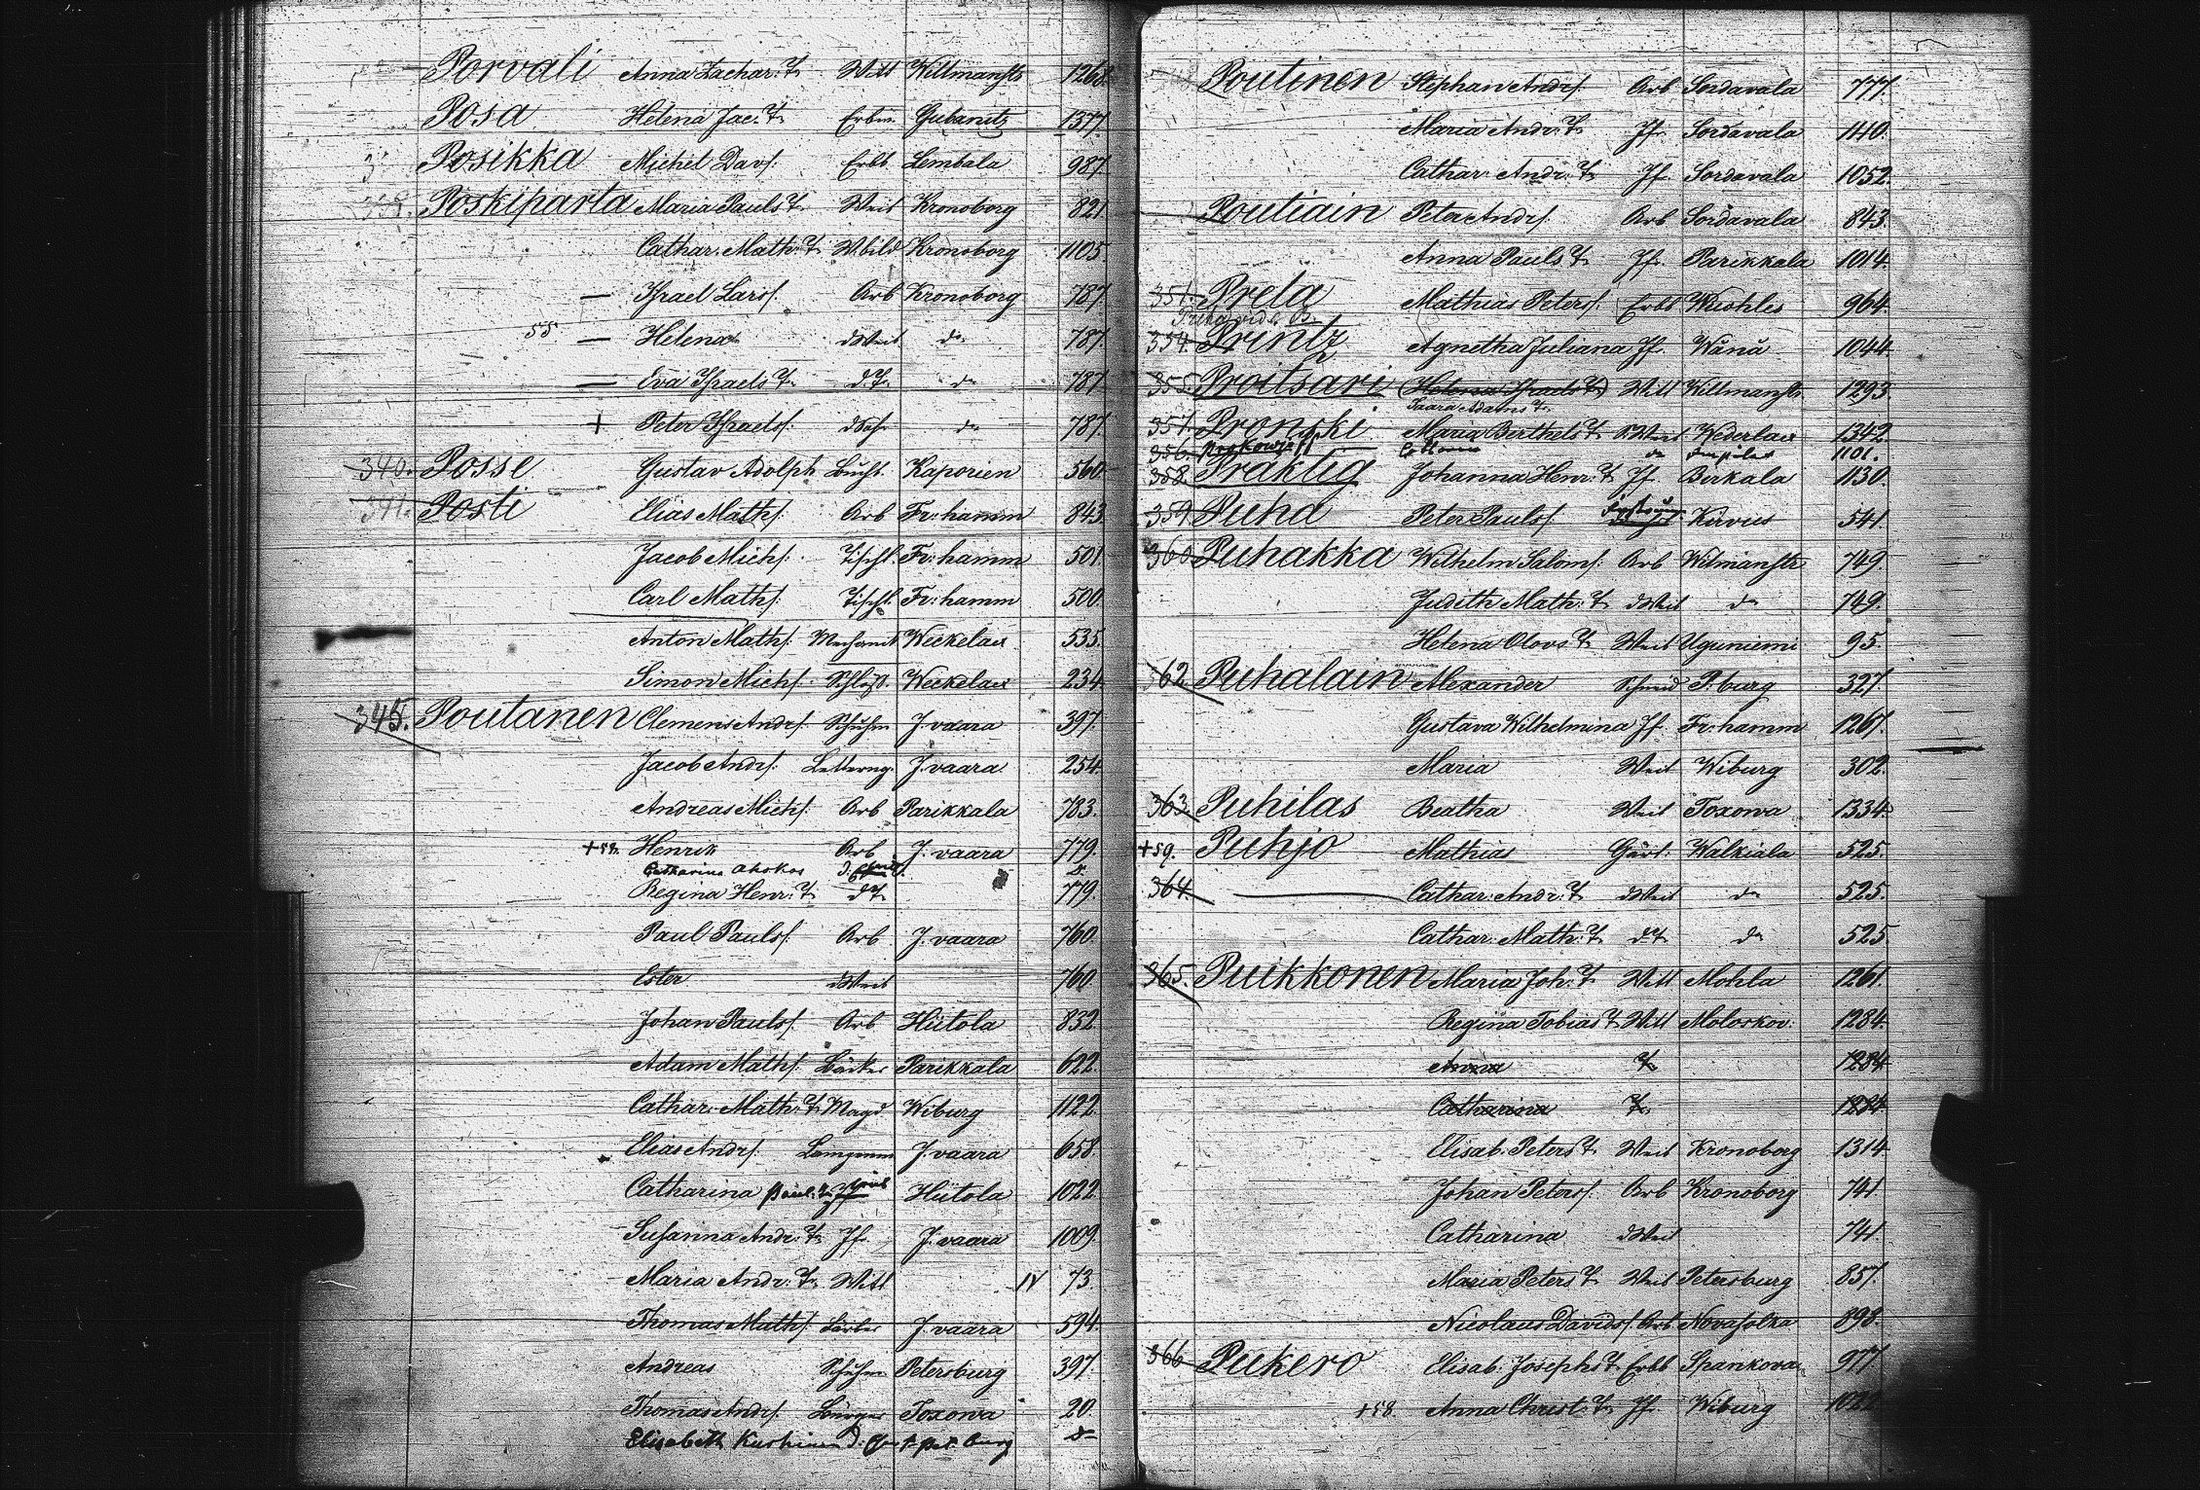 Porvali Anna Zachar. T. Witt Willmanstr 1268.
Posa Helena Jac. T. Erbm. Gubanitz 1377.
Posikka Michel Davs. Erbb Lembala 987.
Poskiparta Maria Pauls T. Weib Kronoborg 821
Cathar. Math. T. Kronoborg 1105
— Israel Lars. Arb Kronoborg 787.
58 — Helena dWeib do 787.
— Eva Israels T. d.T. do 787.
+ Peter Israels. do 787.
340. Posse Gustav Adolph Kaporien 560.
341. Posti Elias Maths. Arb Fr: hamm 843.
Jacob Michs. Tischl. Fr: hamm 501.
Carl Maths. Tischl. Fr: hamm 500.
Anton Maths. Mechanik Weckelax 535.
Simon Michs. Weckelax 234.
345. Poutanen Clemens Andrs. Schuhm J. vaara 397.
Jacob Andrs. J. vaara 254.
Andreas Michs. Arb Parikkala 783.
+58. Henrik Arb J. vaara 779.
Catharina Ahokas
Regina Henr. T. dT 779.
Paul Pauls. Arb J. vaara 760.
Ester dWeib 760.
Johan Pauls. Arb Hiitola 832.
Adam Maths. Bäcker Parikkala 622.
Cathar. Math. T. Magd Wiburg 1122.
Elias Andrs. J. vaara 658.
Catharina Hiitola 1022.
Susanna Andr. T. Jf. J. vaara 1009.
Maria Andr. T. Witt IV 73.
Thomas Maths. J. vaara 594.
Andreas Schuhm Petersburg 397.
Thomas Andrs. Bürger Toxowa 20.
Elisabeth
Poutinen Stephan Andrs. Arb Sordavala 777.
Maria Andr. T. Jf. Sordavala 1140.
Cathar. Andr. T. Jf. Sordavala 1052.
Poutiain Peter Andrs. Arb Sordavala 843.
Anna Pauls T. Jf. Parikkala 1014.
351. Preta Mathias Peters. Erbb Wuohles 964.
354. Printz Agnetha Juliana Jf. Wånå 1044.
355. Proitsari (Helena Israels T.) Witt Willmanstr 1293.
Saara Adams T.
357. Pronski Maria Berthels T. Weib Wederlax 1342.
356. do Impilax 1101.
358. Praktig Johanna Henr. T. Jf. Birkala 1130.
359. Puha Peter Pauls. Kirvus 541.
360. Puhakka Wilhelm Saloms. Arb Wilmanstr 749.
Judith Math. T. dWeib do 749.
Helena Olovs T. Weib Uguniemi 95.
362. Puhalain Alexander Schneid P. burg 327.
Gustava Wilhelmina Jf. Fr: hamm 1267.
Maria Weib Wiburg 302.
363. Puhilas Beatha Weib Toxowa 1334.
+59. Puhjo Mathias Gärt. Walkiala 525.
364. — Cathar. Andr. T. dWeib do 525.
Cathar. Math. T. dT do 525.
365. Puikkonen Maria Joh. T. Witt Mohla 1261.
Regina Tobias T. Witt Moloskov. 1284.
Anna T. 1284
Catharina T. 1284
Elisab. Peters T. Weib Kronoborg 1314
Johan Peters. Arb Kronoborg 741
Catharina dWeib 741.
Maria Peters T. Weib Petersburg 857.
Nicolaus Davids. Arb Novasolka 898.
366 Pukero Elisab. Josephs T. Erbb Spankova 977.
+58. Anna Christ. T. Jf. Wiburg 1022